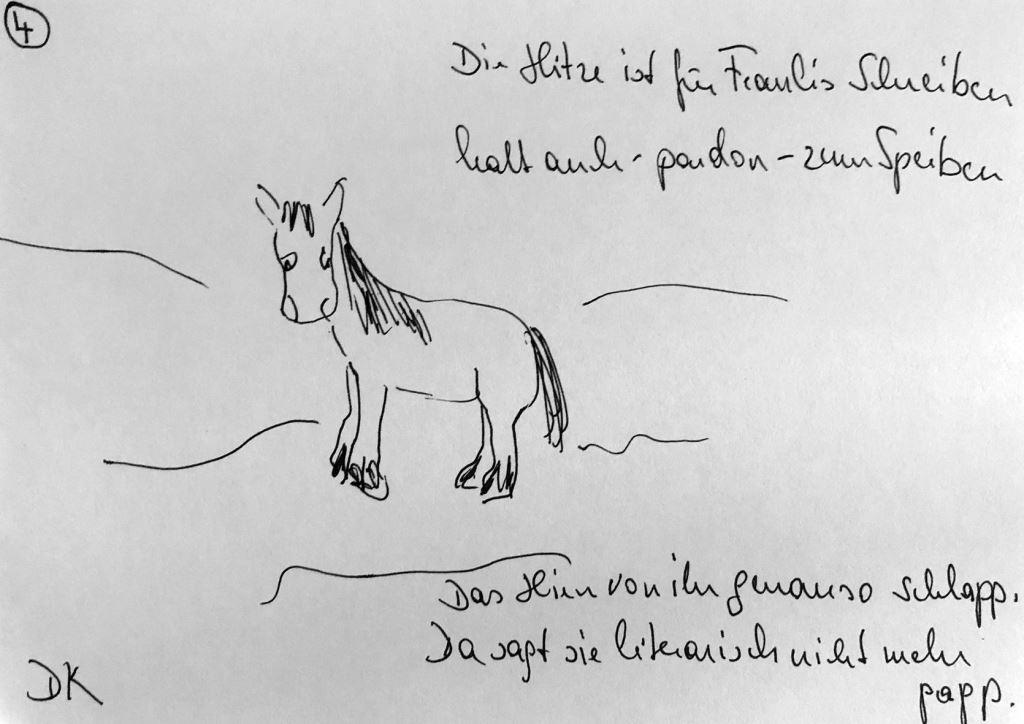 4
Die Hitze ist für Fraulis Schreiben
halt auch - pardon - zum Speiben
Das Hirn von ihr genauso schlapp.
Da sagt sie literarisch nicht mehr
papp.
DK